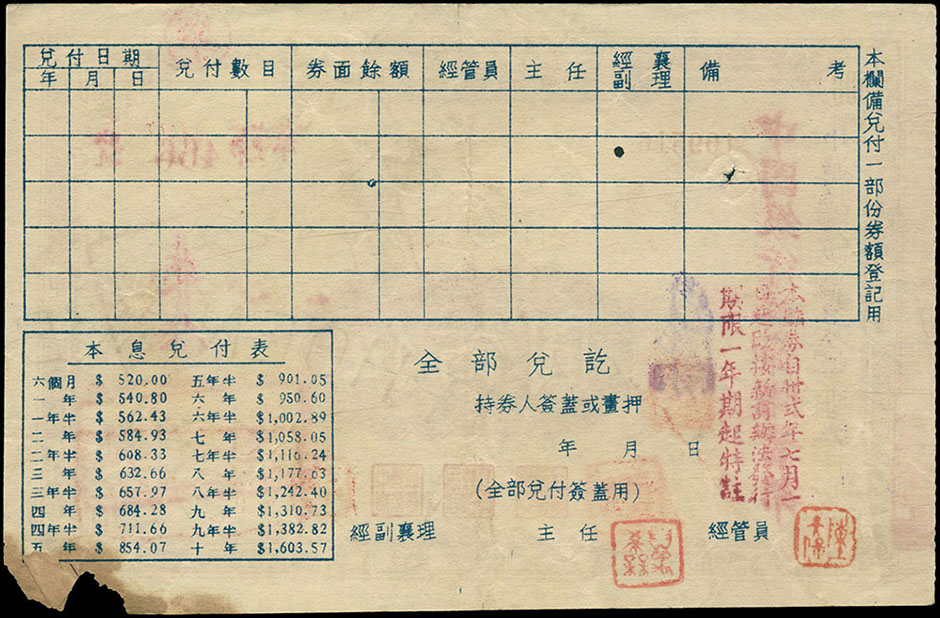 兌付日期
年 月 日
兌付數目
券面餘額
經管員
主任
經副襄理
備考
本欄備兌付一部份券額登記用
本息兌付表
六個月 $ 520.00 五年半 $ 901.05
一年 $ 540.80 六年 $ 950.60
一年半 $ 562.43 六年半 $1,002.89
二年 $ 584.93 七年 $1,058.05
二年半 $ 608.33 七年半 $1,116.24
三年 $ 632.66 八年 $1,177.63
三年半 $ 657.97 八年半 $1,242.40
四年 $ 684.28 九年 $1,310.73
四年半 $ 711.66 九年半 $1,382.82
五年 $ 854.07 十年 $1,603.57
全部兌訖
持券人簽蓋或畫押
年 月 日
(全部兌付簽蓋用)
經副襄理 主任 經管員
本儲券自卅弍年七月一
日起改按新訂辦法發行
期限一年期起特註